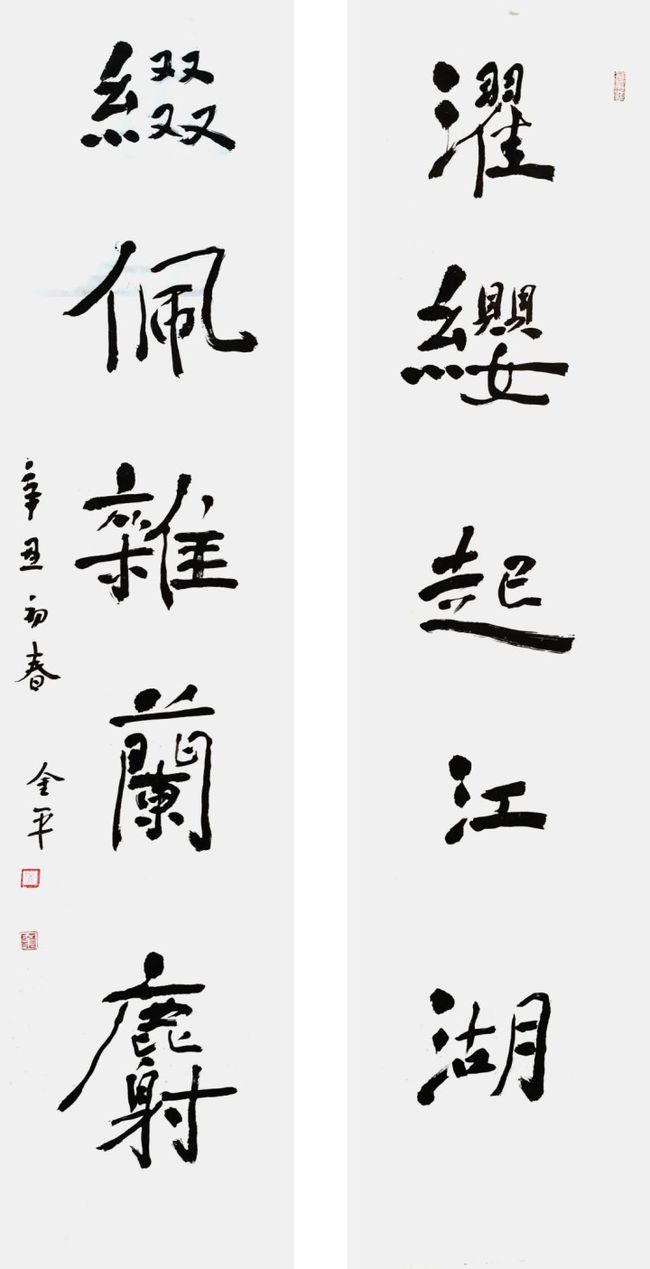 濯纓起江湖
綴佩雜蘭麝
辛丑初春 金平